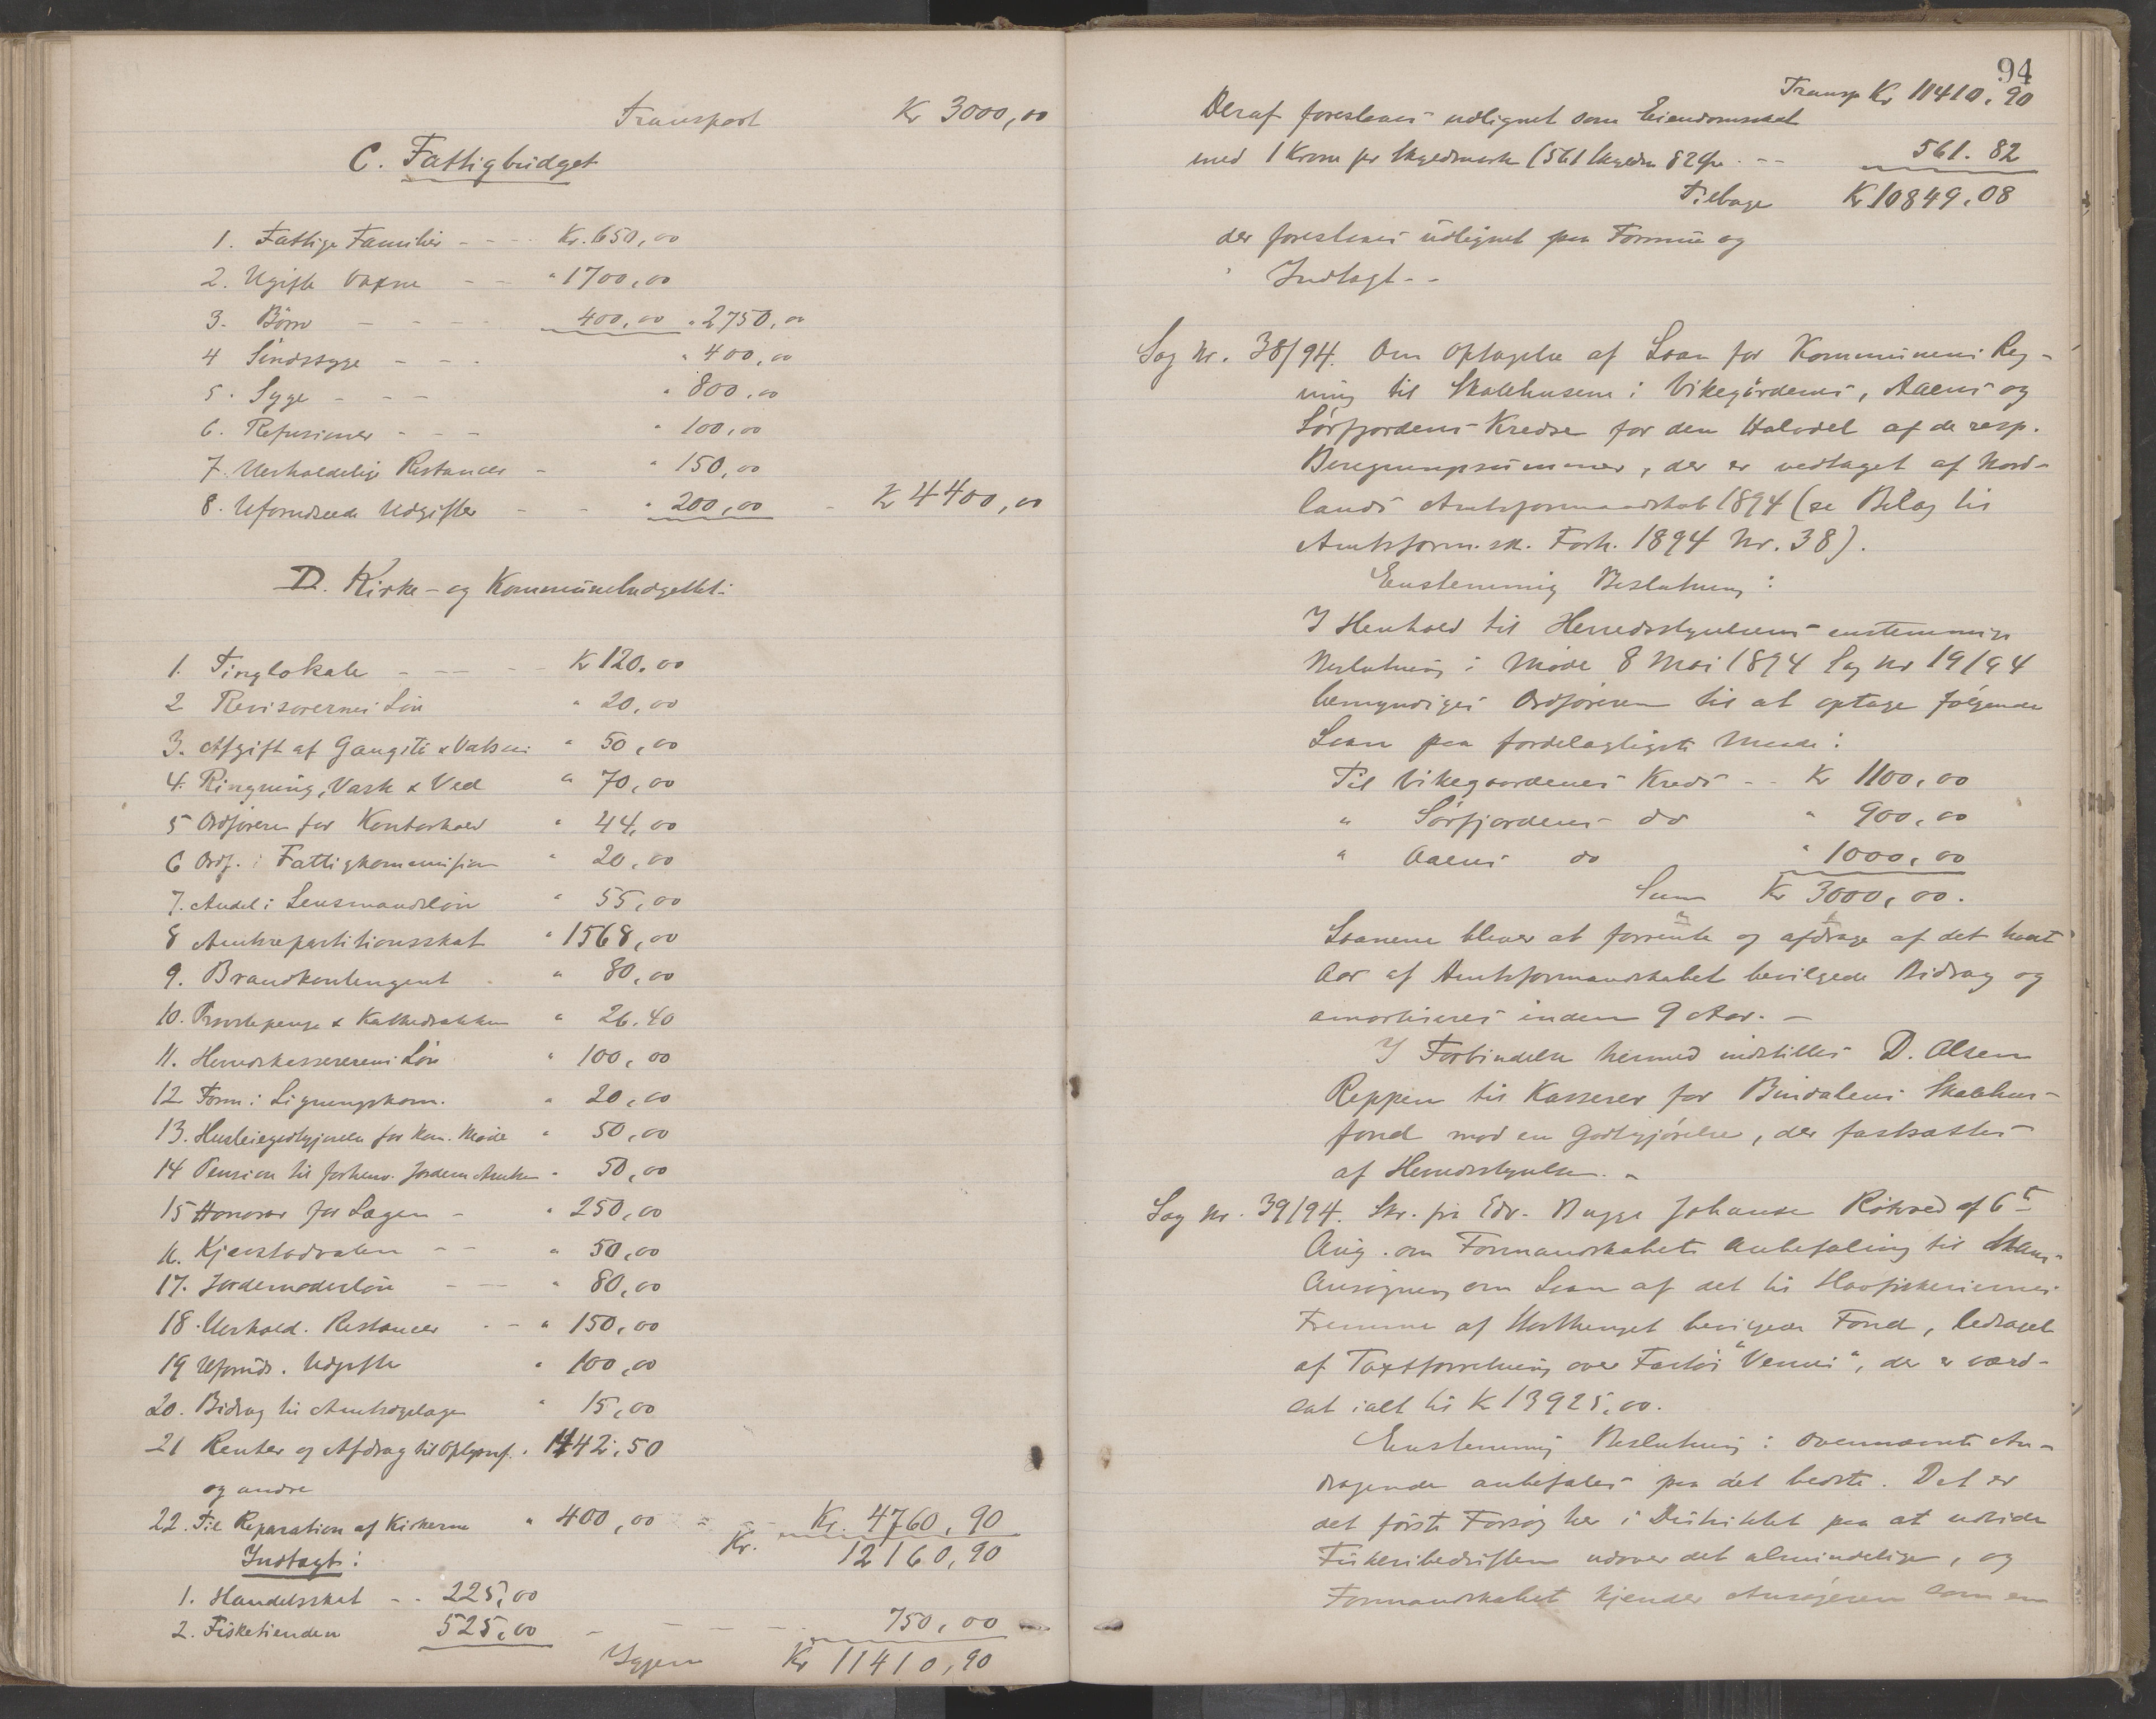 Transport Kr 3000,00
C. Fattigbudget
1. Fattige Familier - - - Kr. 650,00
2. Ugifte Voxne - - " 1700,00
3. Börn - - - - 400,00 " 2750,00
4 Sindssyge - - - " 400,00
5. Syge - - - " 800,00
6. Refusioner - - - " 100,00
7. Uerholdelige Restancer - " 150,00
8. Uforudseede Udgifter - - " 200,00 - Kr 4400,00
D. Kirke- og Kommunebudgettet:
1. Tinglokale - - - - Kr 120,00
2 Revisorernes Løn " 20,00
3. Afgift af Gangsti & Vatsvei " 50,00
4. Ringning, Vask & Ved " 70,00
5 Ordføreren for Kontorhold " 44,00
6 Ordf. i Fattigkommission " 20,00
7. Andel i Lensmandsløn " 55,00
8 Amtsrepartitionsskat " 1568,00
9. Brandkontingent " 80,00
10. Provstepenge & Kathedralskm " 26.40
11. Herredskassererens Løn " 100,00
12 Form. i Ligningskom. " 20,00
13. Husleiegodtgjørelse for Kom. Møde " 50,00
14 Pension til forhenv. Jordem " 50,00
15 Honorar for Lægen - " 250,00
16. Kjerstadvalen - - " 50,00
17. Jordemoderløn - - " 80,00
18. Uerhold. Restancer - - " 150,00
19 Uforuds. Udgifter " 100,00
20. Bidrag til Amtssygelage " 15,00
21 Renter og Afdrag til Oplysnf. " 1442,50
og andre
22. Til Reparation af Kirkerne " 400,00 - - Kr. 4760,90
Kr. 12160,90
Indtægt:
1. Handelsskat - - 225,00
2. Fisketienden 525,00 - - - - 750,00
Igjen Kr 11410,90
94
Transp Kr 11410,90
Deraf foreslaaes udlignet som Eiendomsskat
med 1 Krone per Skyldmark (561 Skyldm 82 Øre - - 561.82
Tilbage Kr 10849,08
der foreslaaes udlignet paa Formue og
Indtægt - -
Sag Nr. 38/94. Om Optagelse af Laan for Kommunens Reg-
ning til Skolehusene i Vikegårdenes, Aaens og
Sørfjordens Kredse for den Halvdel af de resp.
Beregningssummer, der er vedtaget af Nord-
lands Amtsformandskab 1894 (se Bilag til
Amtsform.sk. Forh. 1894 Nr. 38).
Enstemmig Beslutning:
I Henhold til Herredsstyrelsens enstemmige
Beslutning i Møde 8 Mai 1894 Sag Nr 19/94
bemyndiges Ordføreren til at optage følgende
Laan paa fordelagtigste Maade:
Til Vikegaardenes Kreds - - Kr 1100,00
" Sørfjordens do " 900,00
" Aaens do " 1000,00
Sum Kr 3000,00.
Laanene bliver at forrente og afdrage af det hvert
Aar af Amtsformandskabet bevilgede Bidrag og
amortiseres inden 9 Aar. -
I Forbindelse hermed indstilles D. Olsen
Reppen til Kasserer for Bindalens Skolehus-
fond mod en Godtgjørelse, der fastsættes
af Herredsstyrelsen. -
Sag Nr. 39/94. Skr. fra Edv. Bugge Johansen Røtvæd af 6te
Aug. om Formandskabets Anbefaling til
Ansøgning om Laan af det til Havfiskeriernes
Fremme af Storthinget bevilgede Fond, ledsaget
af Taxtforretning over Fartøi "Venus", der er værd-
sat ialt til Kr 13925,00.
Enstemmig Beslutning: ovennævnte An-
dragende anbefales paa det bedste. Det er
det første Forsøg her i Distriktet paa at udvide
Fiskeribedriften udover det almindelige, og
Formandskabet kjender Ansøgeren som en